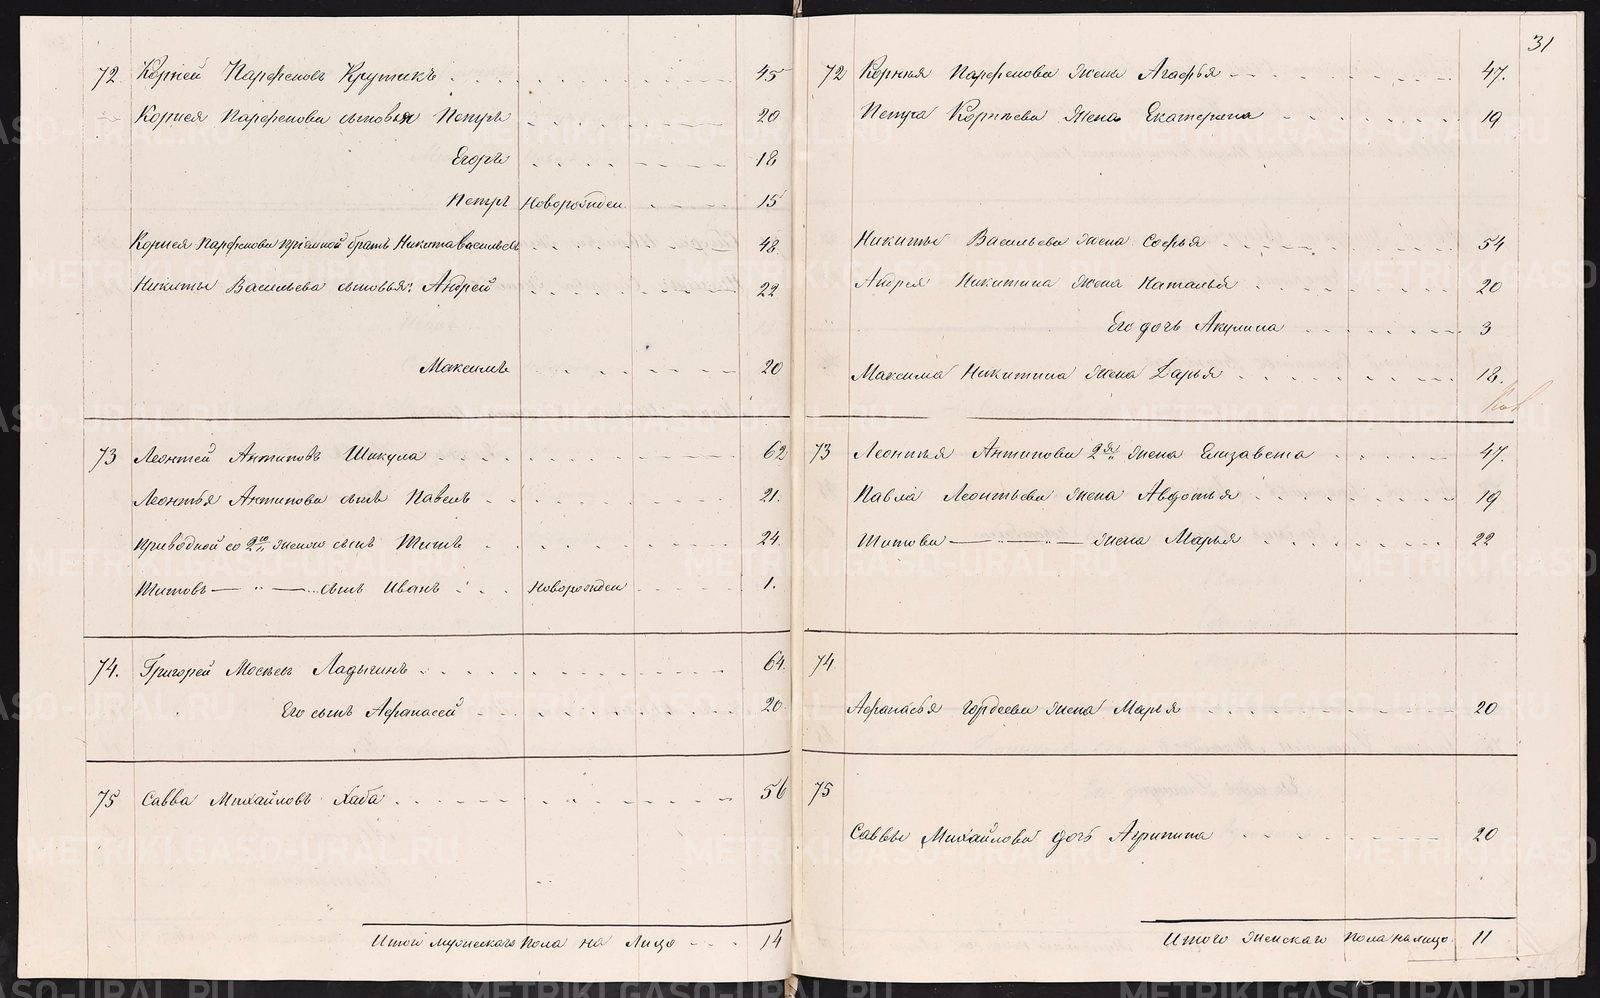 31
72 Корней Парфеновъ Крутикъ 45
Корнея Парфенова сыновья Петръ 20
Егоръ 18
Петръ Новорожден 15
Корнея Парфенова приемной братъ Никита Васильев 48
Никиты Васильева сыновья: Андрей 22
Максимъ 20
73 Леонтей Антиповъ Шикула 62
Леонтья Антипова сынъ Павелъ 21.
Приводной со 2ю женою сынъ Титъ 24
Титовъ — " — сынъ Иванъ Новорожден 1.
74. Григорей Мосеев Ладыгинъ 64
Его сынъ Афанасей 20
75 Савва Михайловъ Хаба 56
Итого мужескаго пола на лицо 14
72 Корнея Парфенова жена Агафья 47.
Петра Корнеева жена Екатерина 19
Никиты Васильева жена Софья 54
Андрея Никитина жена Наталья 20
Его дочь Акулина 3
Максима Никитина жена Дарья 18.
73 Леонтья Антипова 2я жена Елизавета 47.
Павла Леонтьева жена Авдотья 19
Титова — " — жена Марья 22
74
Афанасья Гордеева жена Марья 20
75
Саввы Михайлова дочь Агрипина 20
Итого женскаго пола на лицо 11
METRIKI.GASO-URAL.RU